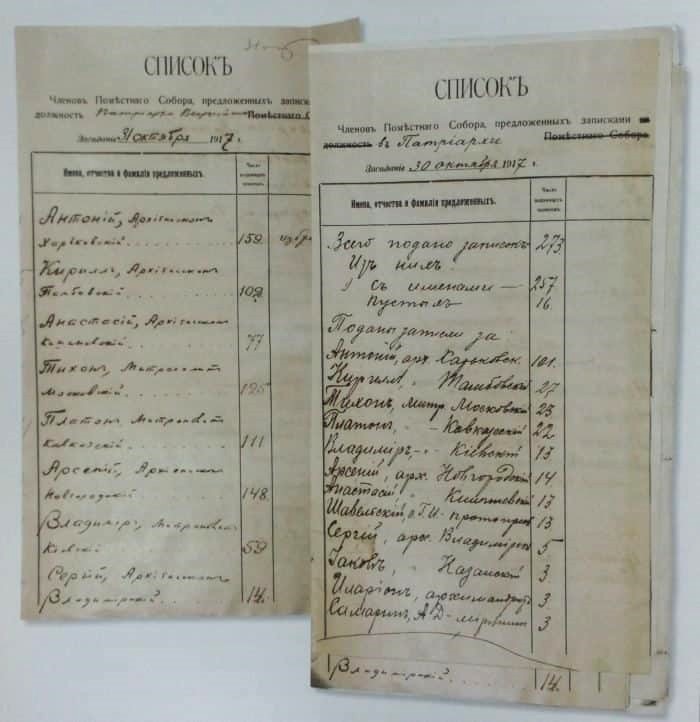 СПИСОКЪ
Членовъ Помѣстнаго Собора, предложенныхъ записками
должность Патріарха Помѣстнаго
Засѣданіе 31 октября 1917 г.
Имена, отчества и фамиліи предложенныхъ.
Число
записокъ.
Антоній, Архіепископъ
Харьковскій 159
Кириллъ, Архіепископъ
Тамбовскій 109
Анастасій, Архіепископъ
Кишиневскій 77
Тихонъ, Митрополитъ
Московскій 125
Платонъ, Митрополитъ
Кавказскій 111
Арсеній, Архіепископъ
Новгородскій 148
Владиміръ, Митрополитъ
Кіевскій 59
Сергій, Архіепископъ
Владимірскій 14
СПИСОКЪ
Членовъ Помѣстнаго Собора, предложенныхъ записками на
должность въ Патріархи Помѣстнаго Собора
Засѣданіе 30 октября 1917 г.
Имена, отчества и фамиліи предложенныхъ.
Число
записокъ.
Всего подано записокъ 273
Изъ нихъ
съ именами — 257
пустыхъ 16
Поданы записки за
Антоній, арх. Харьковск. 101
Кириллъ, " Тамбовскій 27
Тихонъ, митр. Московскій 23
Платонъ, " Кавказскій 22
Владиміръ " Кіевскій 13
Арсеній, арх. Новгородскій 14
Анастасій " Кишиневскій 13
Шавельскій, о. Г.И. протопресв 13
Сергій, арх. Владимірск 5
Іаковъ, " Казанскій 3
Иларіонъ, архимандритъ 3
Самаринъ, А.Д. мірянинъ 3
Владимірскій 14